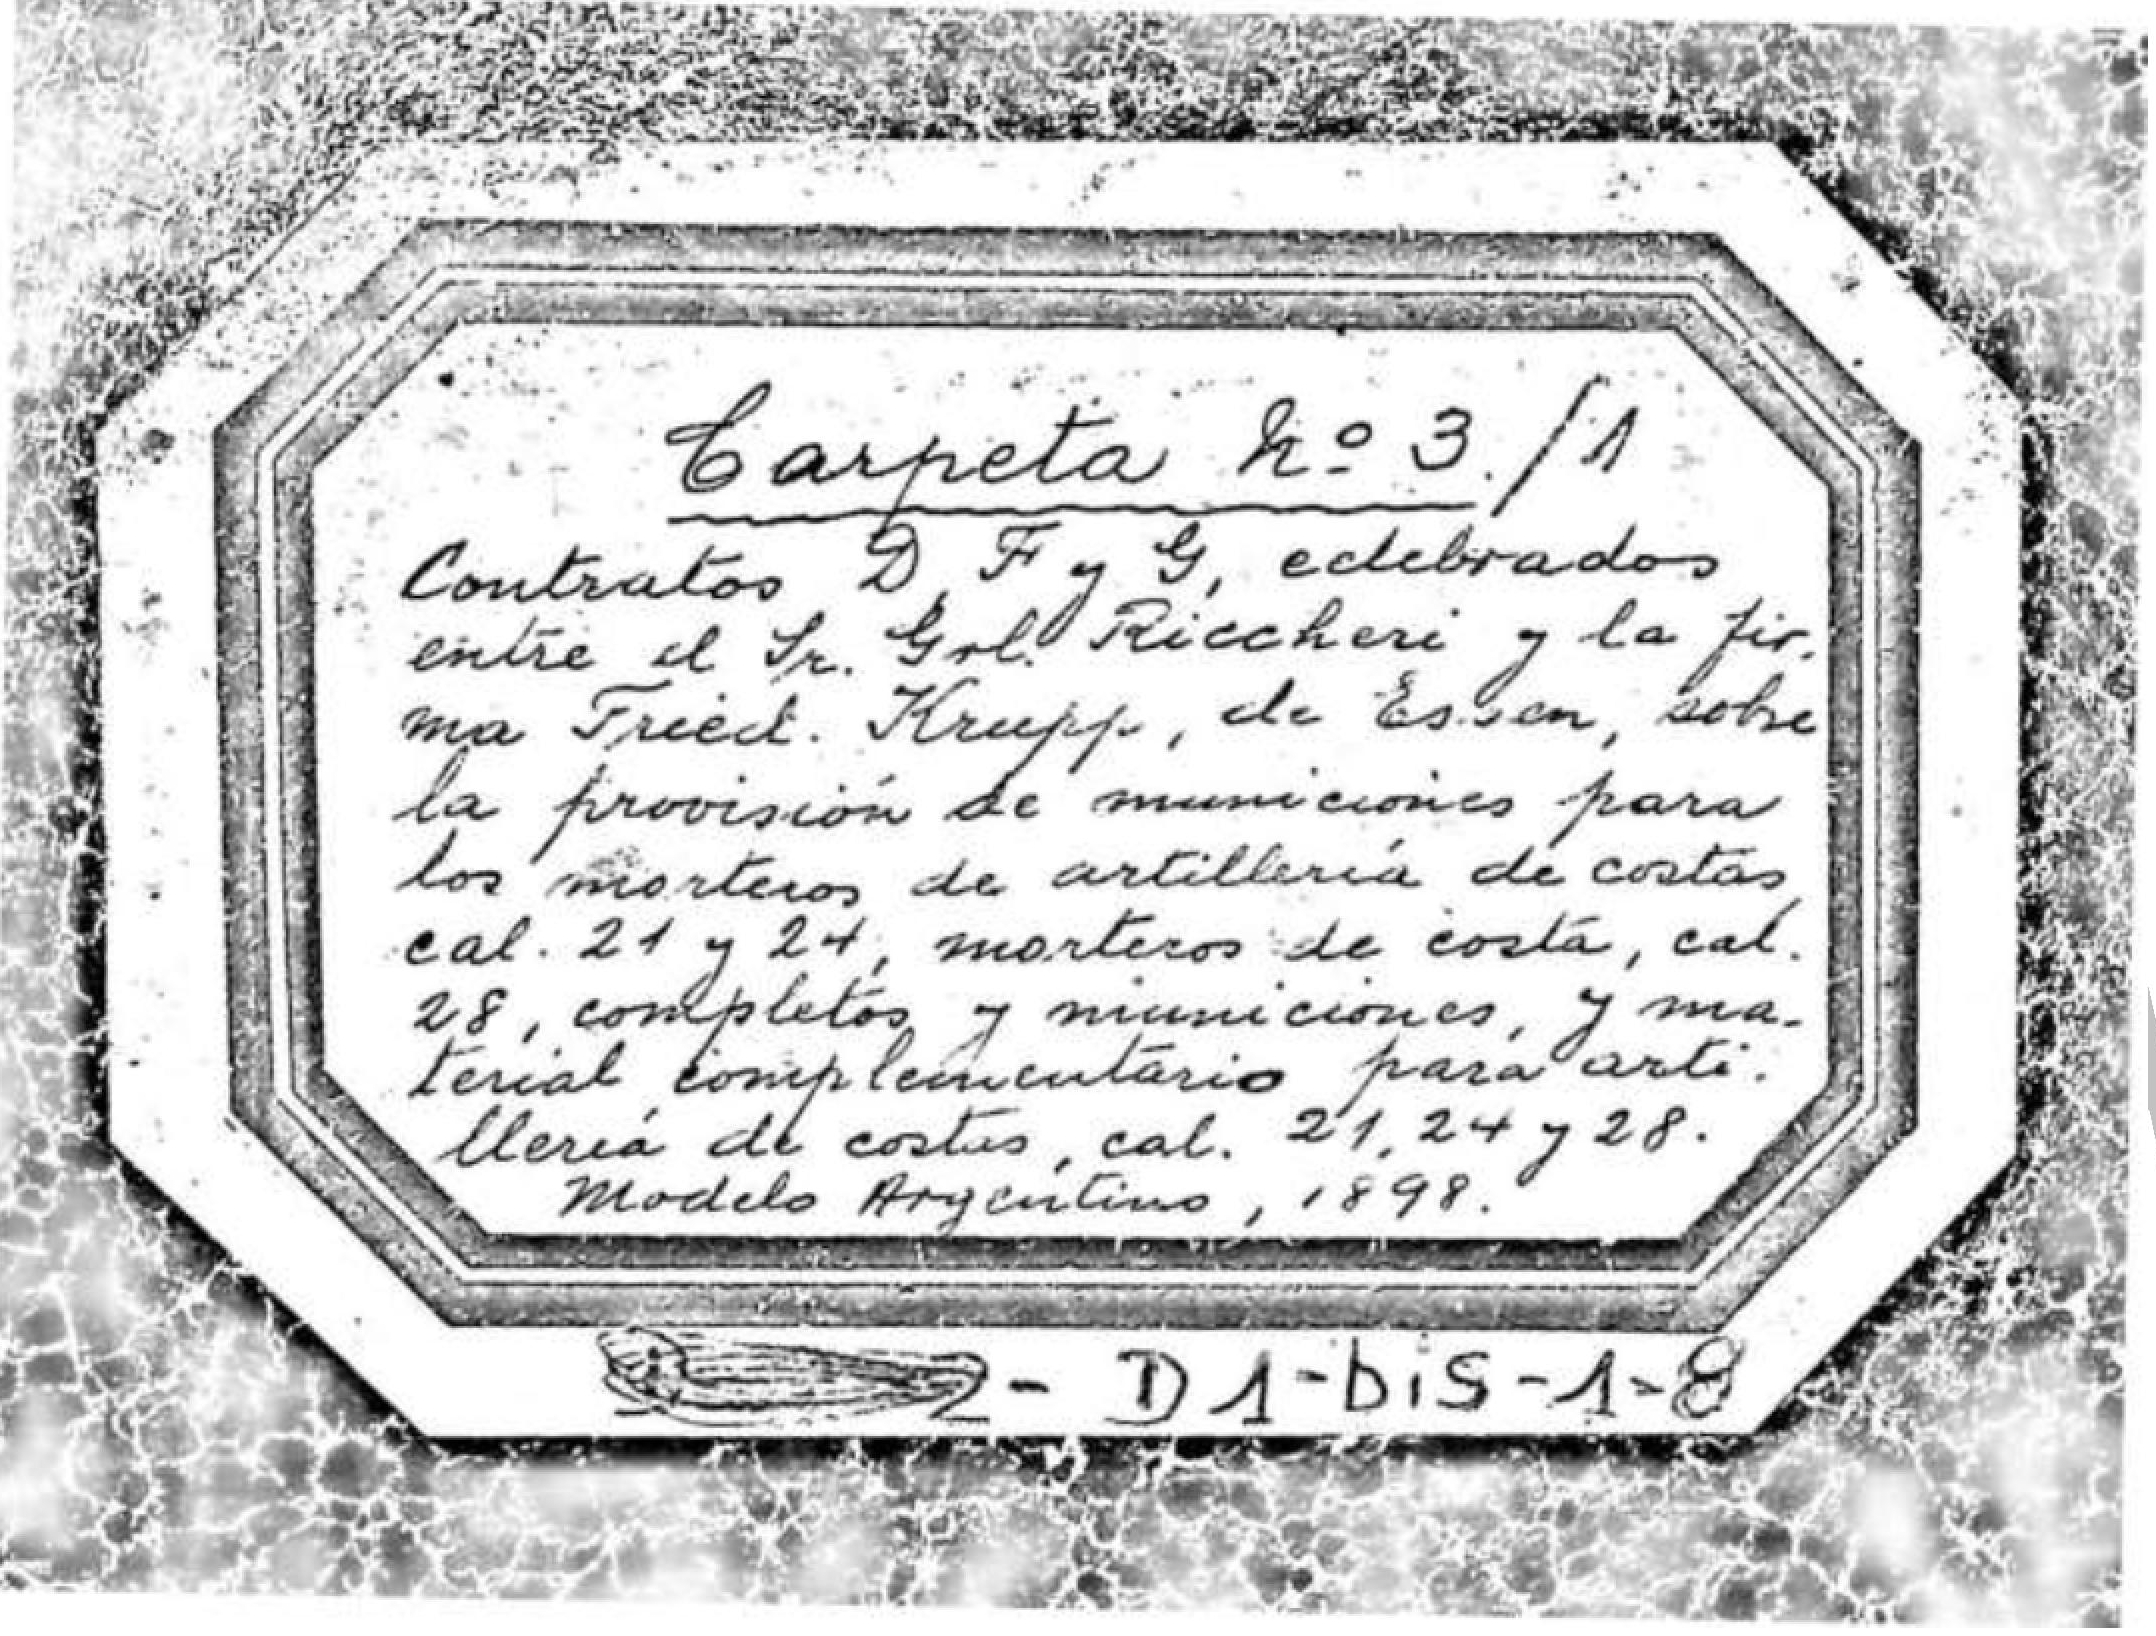 Carpeta Nº 3./1
Contratos D, F y G, celebrados
entre el Sr. Grl. Riccheri y la fir-
ma Fried. Krupp, de Essen, sobre
la provisión de municiones para
los morteros de artillería de costas,
cal. 21 y 24, morteros de costa, cal.
28, completos y municiones, y ma-
terial complementario para arti-
llería de costas, cal. 21, 24 y 28.
Modelo Argentino, 1898.
- D1-bis-1-8